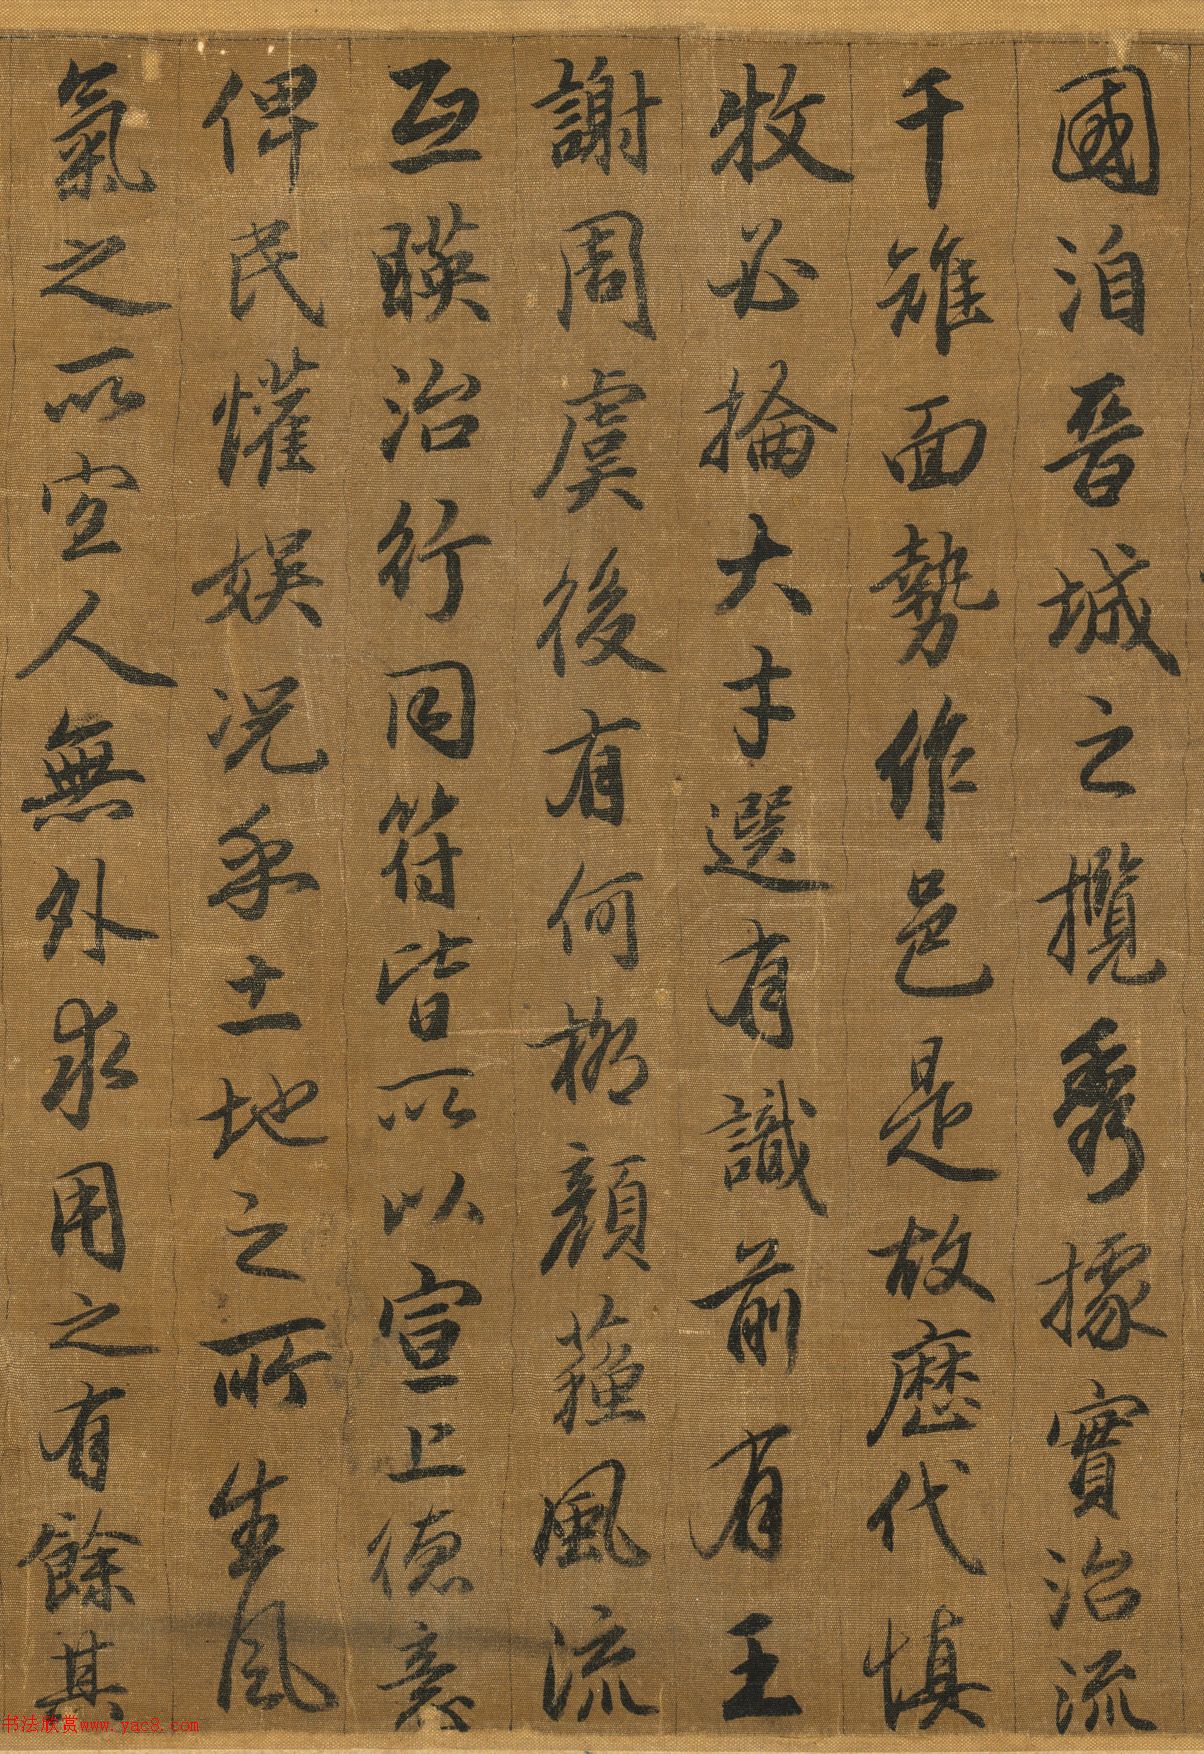 國洎晉城之攬秀據實治流
千雉面勢作邑是故歷代慎
牧必掄大才選有識前有王
謝周虞後有何柳顏蘓風流
互暎治行同符皆所以宣上德意
俾民懽娛况乎土地之所生風
氣之所宜人無外求用之有餘其
书法欣赏www.yac8.com